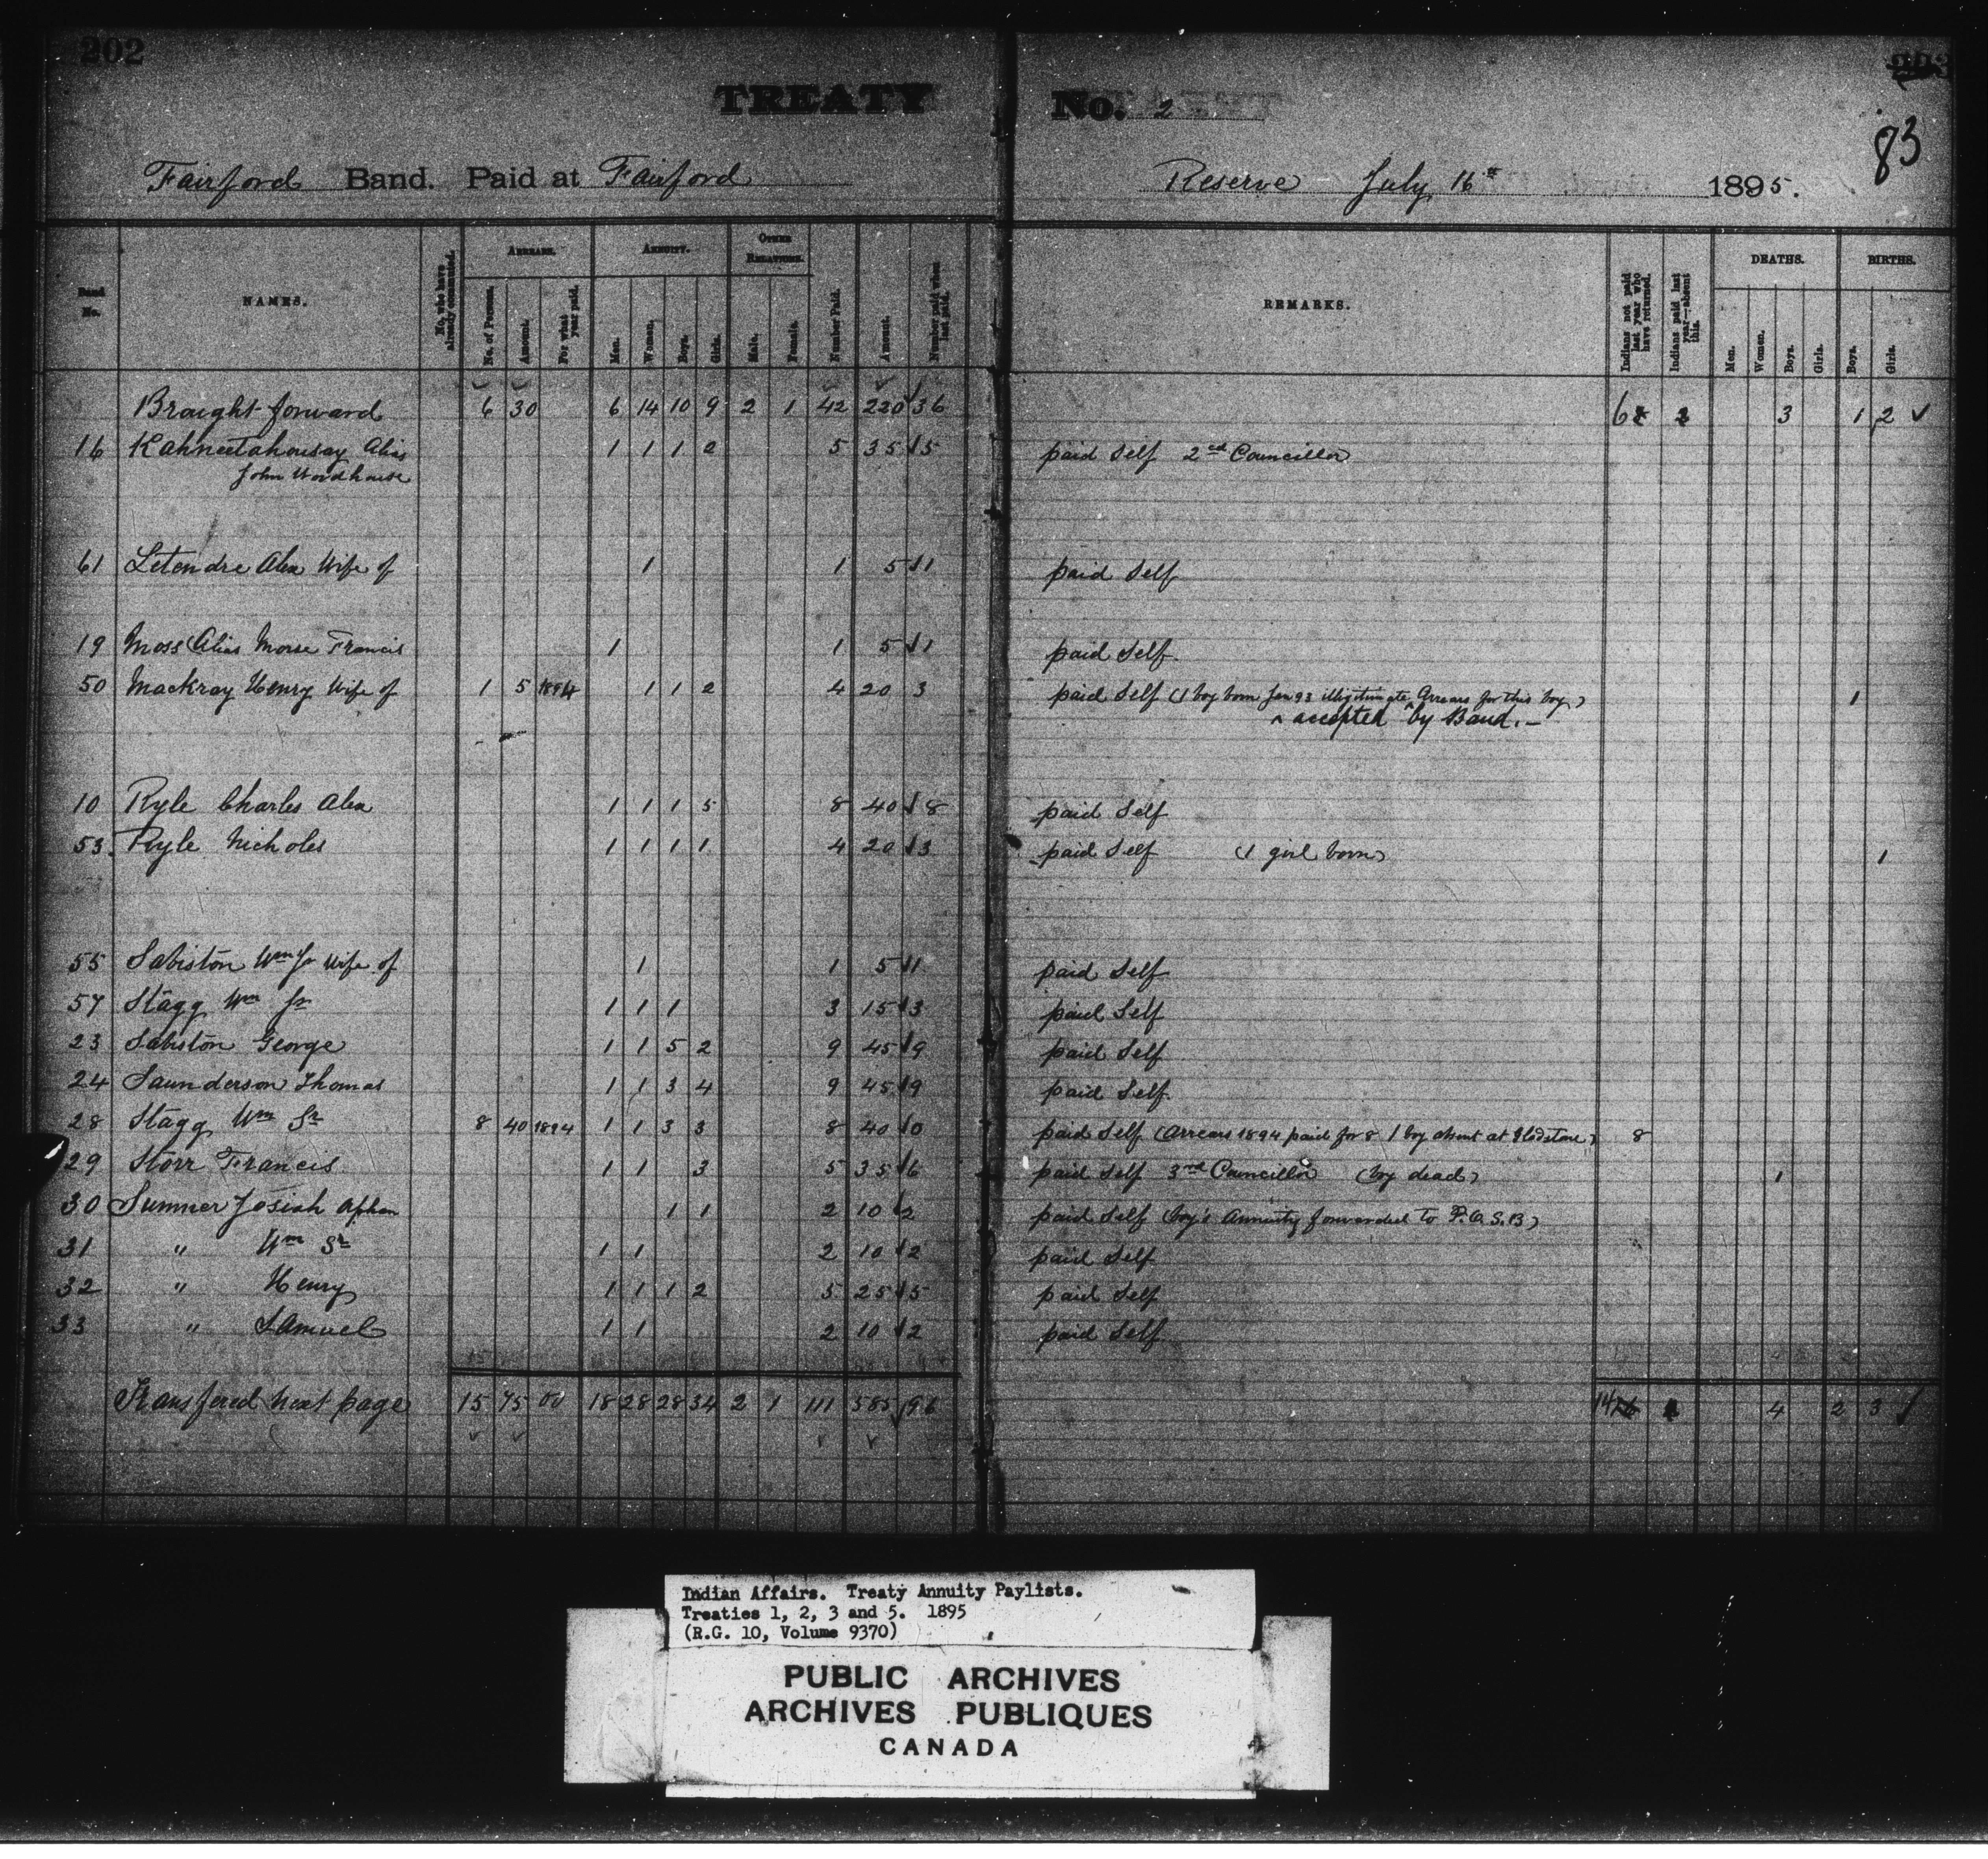 202
TREATY No. 2
83
Fairford Band. Paid at Fairford Reserve July 16th 1895.
Band No. NAMES. No. who have already commuted. ARREARS. No. of Persons. Amount. For what year paid. ANNUITY. Men. Women. Boys. Girls. OTHER RELATIONS. Male. Female. Number Paid. Amount. Number paid when last paid. REMARKS. Indians not paid last year who have returned. Indians paid last year—absent this. DEATHS. Men. Women. Boys. Girls. BIRTHS. Boys. Girls.
Brought forward 6 30 6 14 10 9 2 1 42 220 36 6 3 1 2
16 Kahneetahousay Alias 1 1 1 2 5 35 5 paid Self 2nd Councillor
John Woodhouse
61 Letendre Alex Wife of 1 1 5 1 paid Self
19 Moss Alias Morse Francis 1 1 5 1 paid Self
50 Mackray Henry Wife of 1 5 1894 1 1 2 4 20 3 paid Self (1 boy born Jan 93 illigitimate Arrears for this boy) 1
^ accepted by Band.-
10 Ryle Charles Alex 1 1 1 5 8 40 8 paid Self
53. Ryle Nicholes 1 1 1 1 4 20 3 paid Self (1 girl born) 1
55 Sabiston Wm Jr Wife of 1 1 5 1 paid Self
57 Stagg Wm Jr 1 1 1 3 15 3 paid Self
23 Sabiston George 1 1 5 2 9 45 9 paid Self
24 Saunderson Thomas 1 1 3 4 9 45 9 paid Self
28 Stagg Wm Sr 8 40 1894 1 1 3 3 8 40 0 paid Self (Arrears 1894 paid for 8 1 boy absent at Gladstone) 8
29 Storr Francis 1 1 3 5 35 6 paid Self 3rd Councillor (boy dead) 1
30 Sumner Josiah Orphan 1 1 2 10 2 paid Self (boy's Annuity forwarded to P.O.S.B)
31 " Wm Sr 1 1 2 10 2 paid Self
32 " Henry 1 1 1 2 5 25 5 paid Self
33 " Samuel 1 1 2 10 2 paid Self
Transfered next page 15 75 00 18 28 28 34 2 1 111 585 96 14 4 2 3
Indian Affairs. Treaty Annuity Paylists.
Treaties 1, 2, 3 and 5. 1895
(R.G. 10, Volume 9370)
PUBLIC ARCHIVES
ARCHIVES PUBLIQUES
CANADA